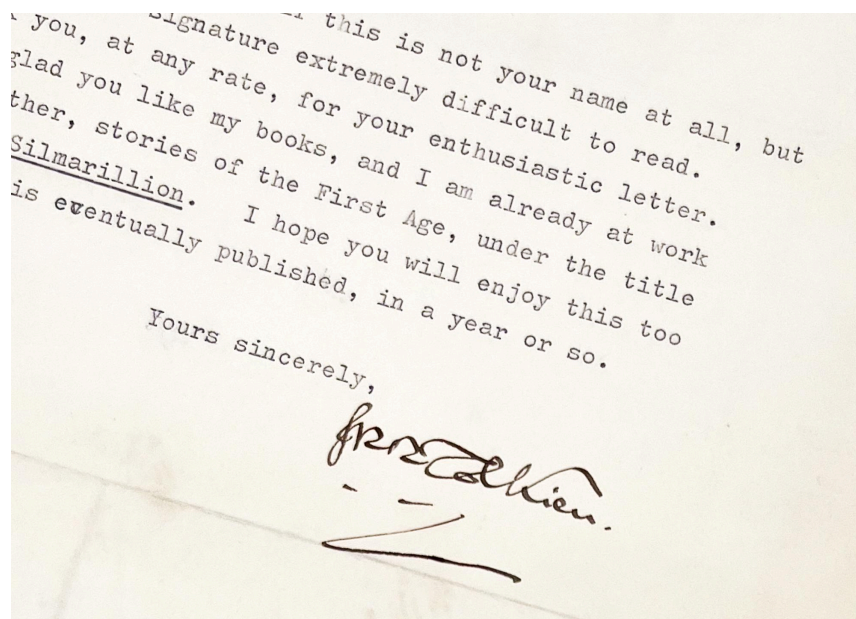 this is not your name at all, but
signature extremely difficult to read.
you, at any rate, for your enthusiastic letter.
glad you like my books, and I am already at work
ther, stories of the First Age, under the title
Silmarillion. I hope you will enjoy this too
is eventually published, in a year or so.
Yours sincerely,
JRRTolkien.